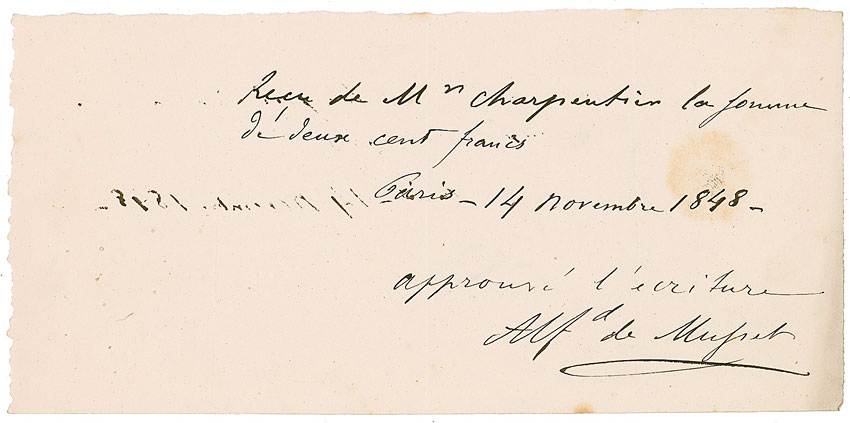 Reçu de Mr charpentier la somme
de deux cent francs
Paris - 14 novembre 1848 -
approuvé l'écriture
Alfd de Musset